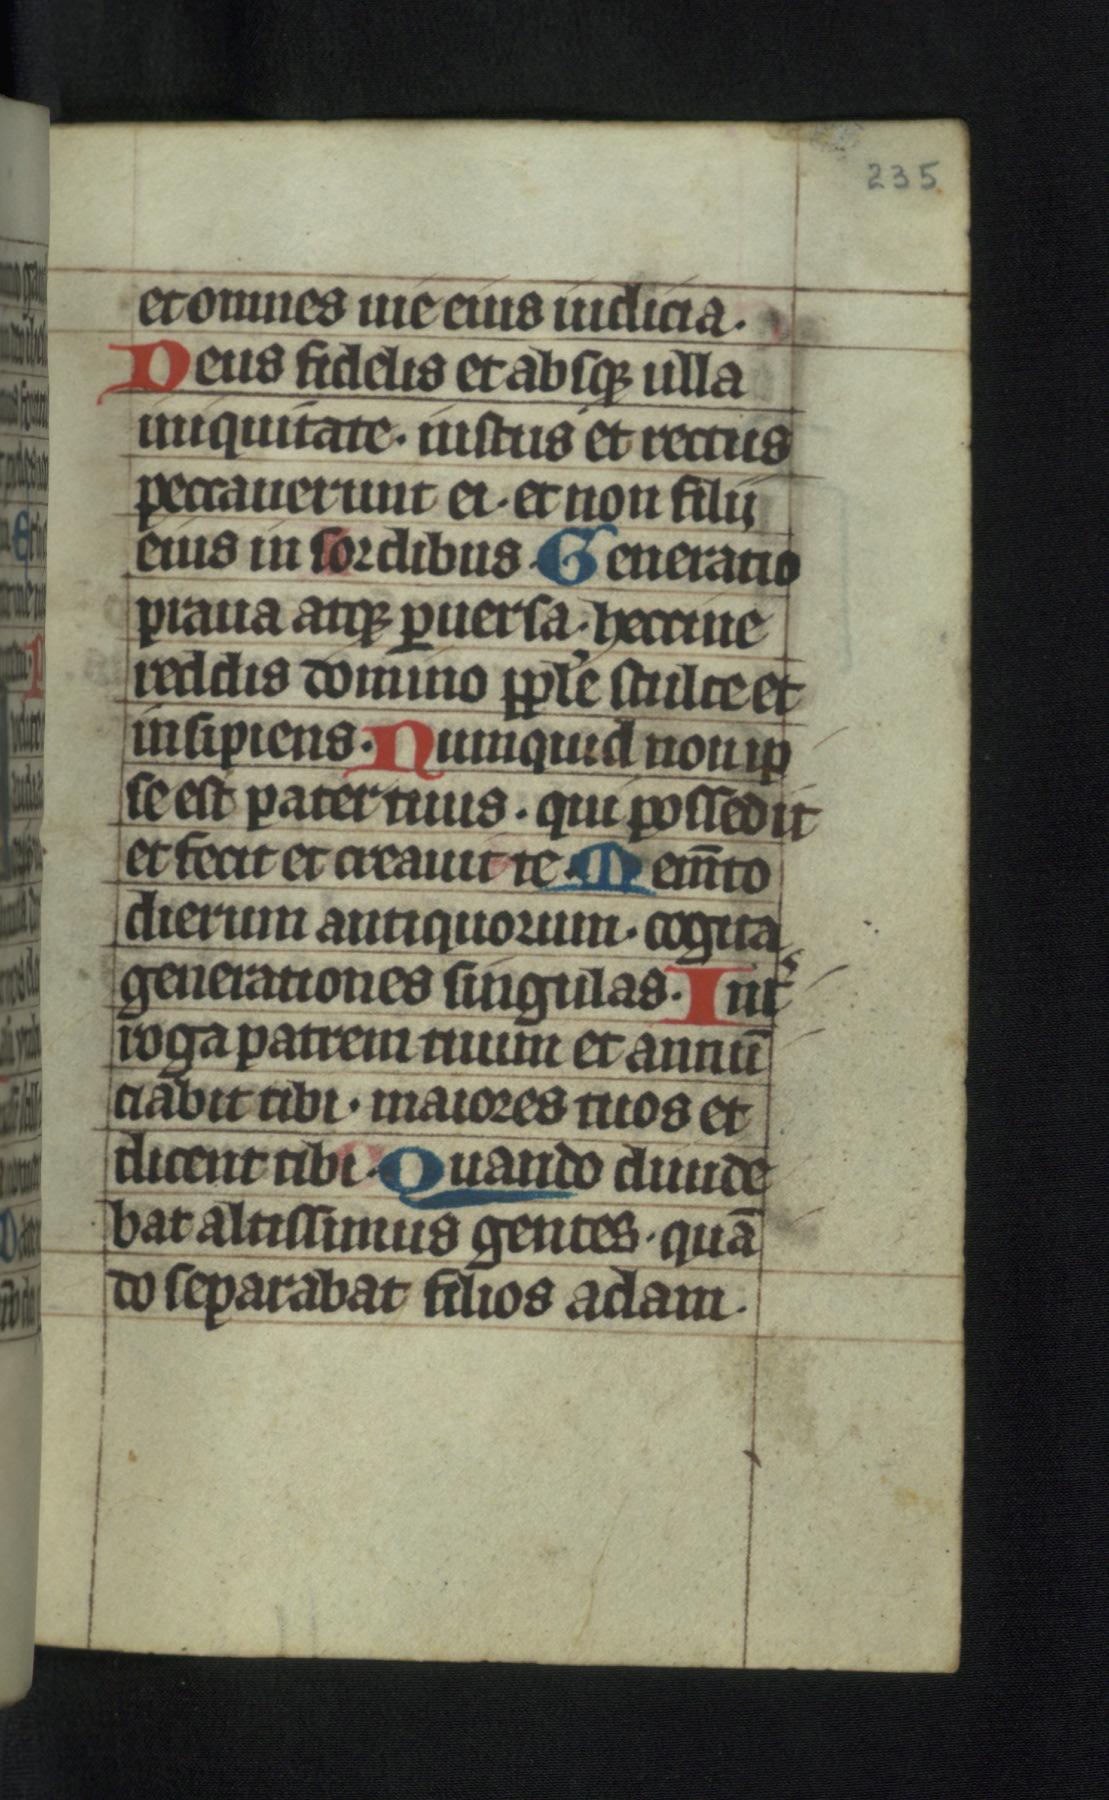 235
et omnes uie eius iudicia.
Deus fidelis et absqꝫ ulla
iniquitate. iustus et rectus
peccauerunt ei. et non filij
eius in sordibus. Generatio
praua atqꝫ ꝑuersa. heccine
reddis domino pple stulte et
insipiens. Numquid non ip
se est pater tuus. qui possedit
et fecit et creauit te. Memto
dierum antiquorum. cogita
generationes singulas. Int
roga patrem tuum et annū
ciabit tibi. maiores tuos et
dicent tibi. Quando diuide
bat altissimus gentes. quā
do separabat filios adam.